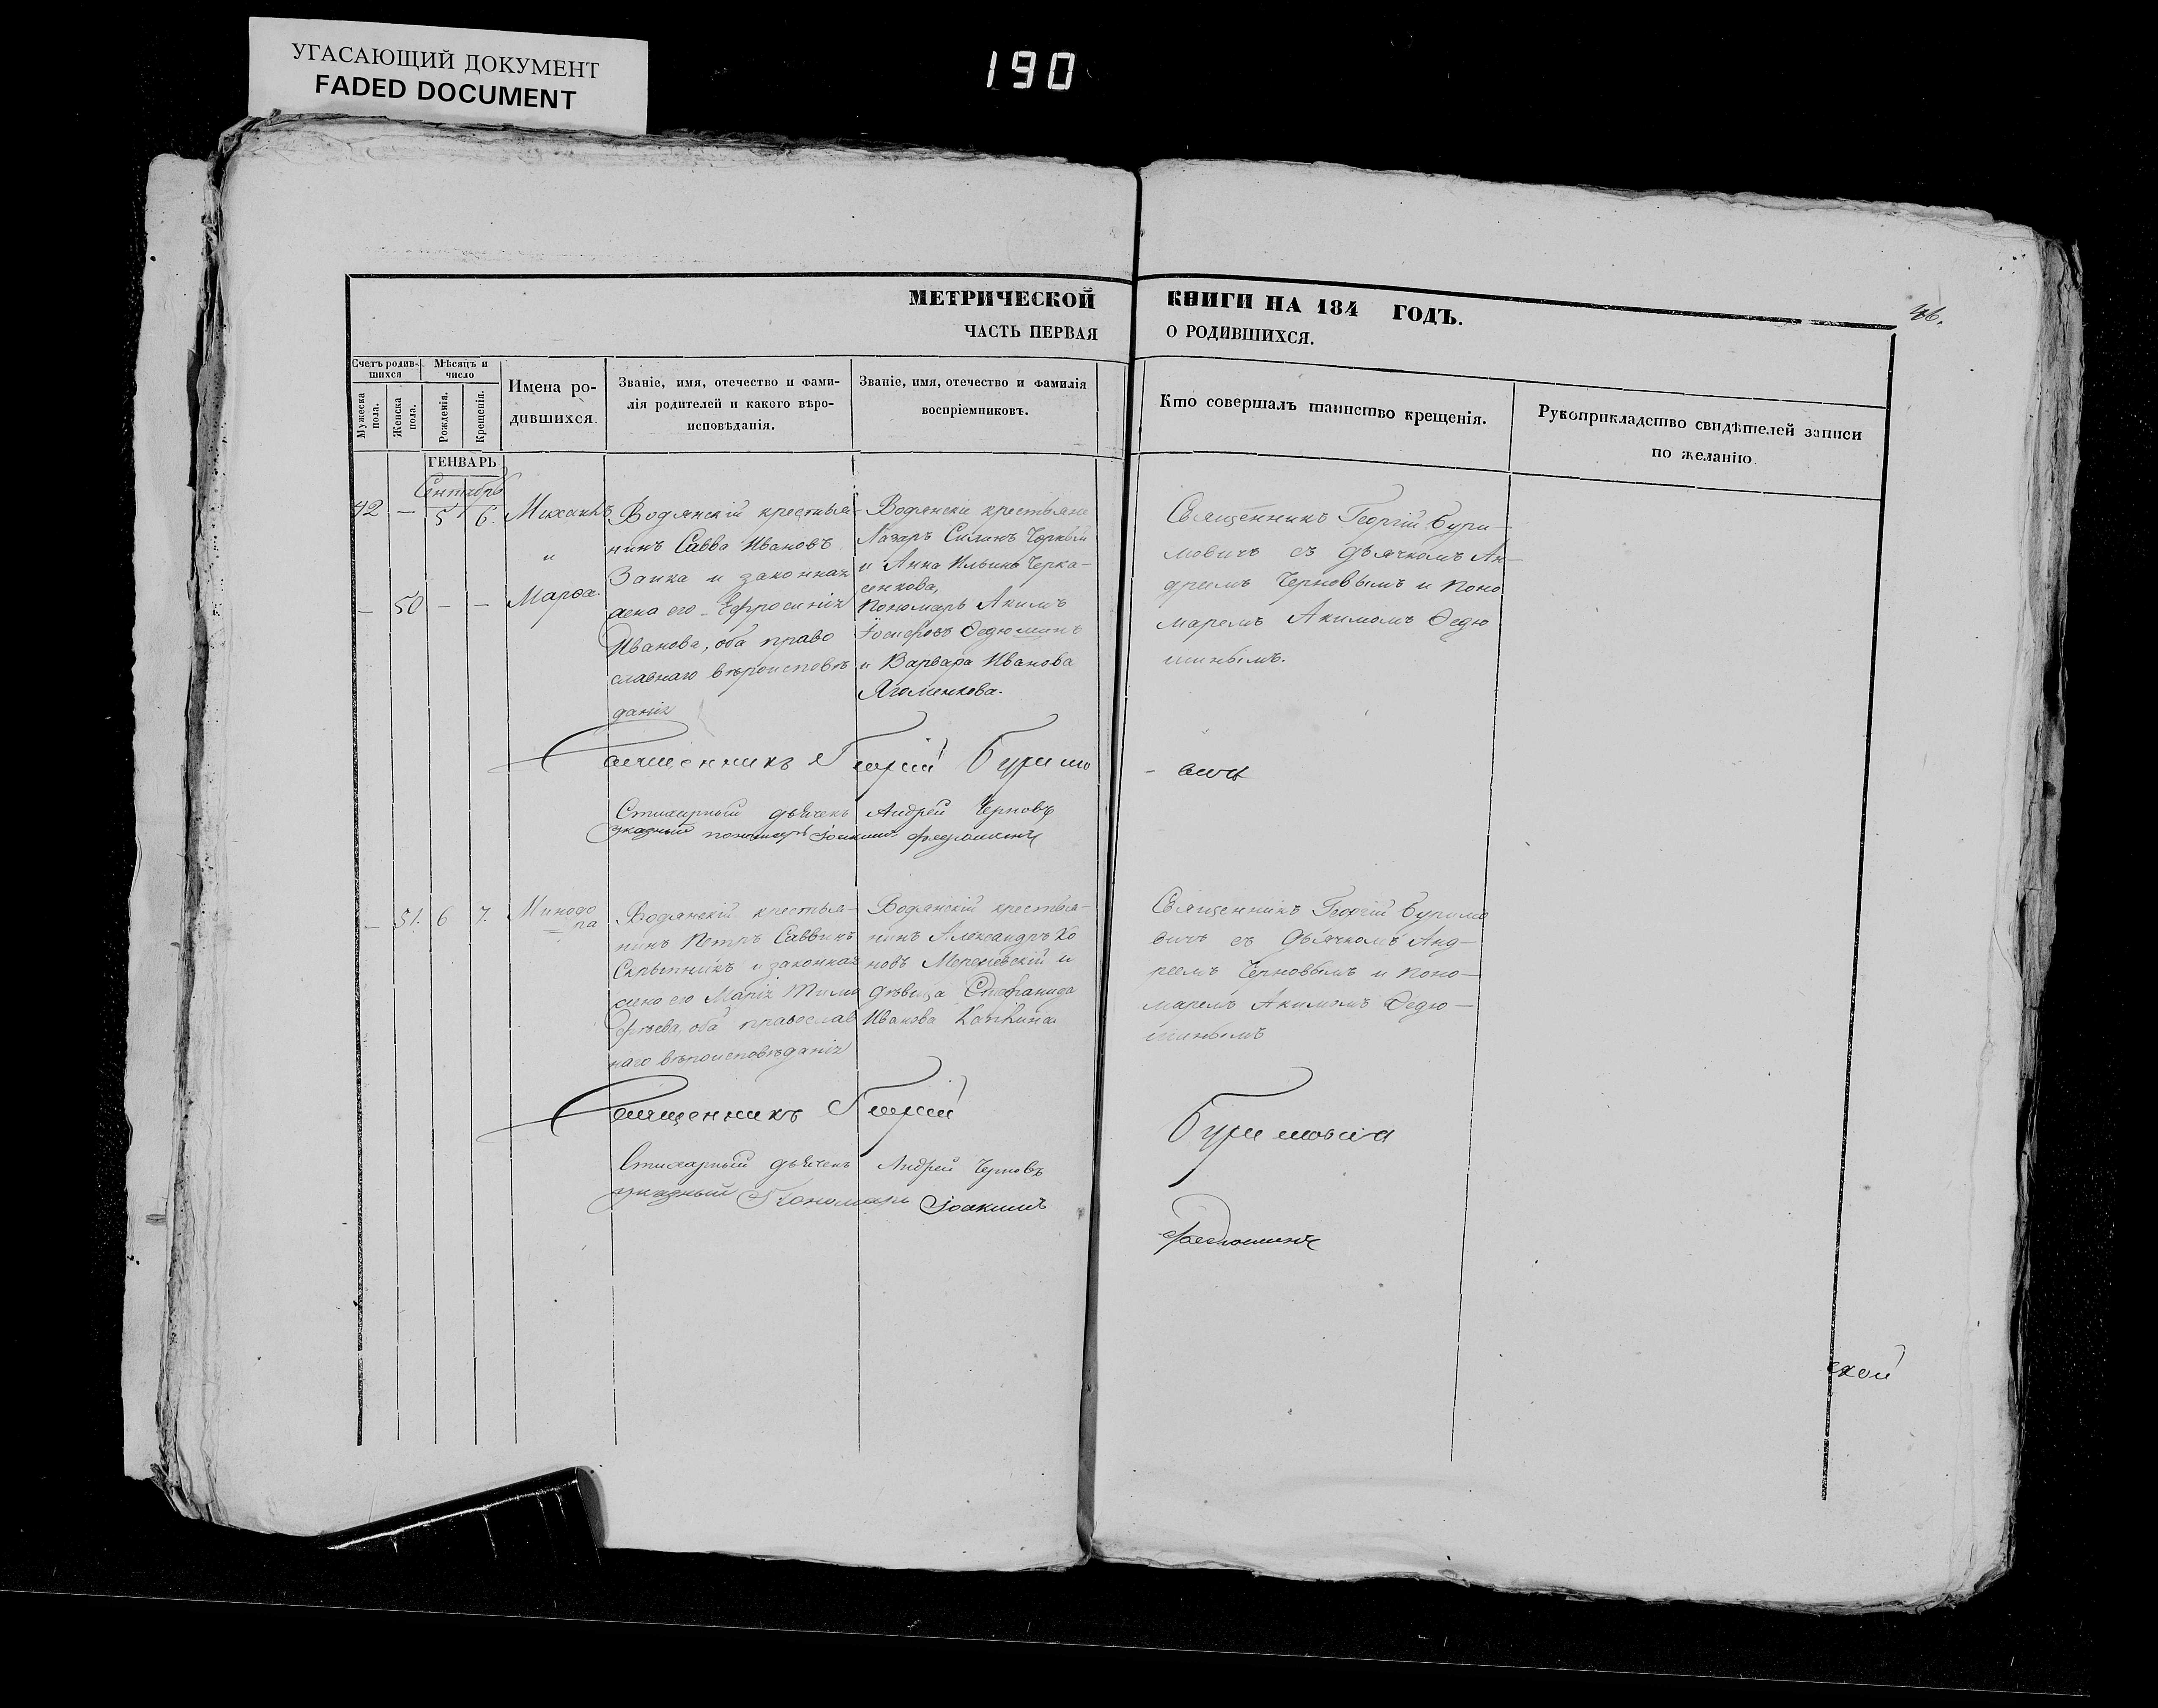 УГАСАЮЩИЙ ДОКУМЕНТ
FADED DOCUMENT
190
МЕТРИЧЕСКОЙ
КНИГИ НА 184 ГОДЪ.
ЧАСТЬ ПЕРВАЯ
О РОДИВШИХСЯ.
46.
Счетъ родив-
шихся
Мужеска
пола.
Женска
пола.
Мѣсяцъ и
число
Рожденія.
Крещенія.
Имена ро-
дившихся.
Званіе, имя, отечество и фами-
лія родителей и какого вѣро-
исповѣданія.
Званіе, имя, отечество и фамилія
воспріемниковъ.
Кто совершалъ таинство крещенія.
Рукоприкладство свидѣтелей записи
по желанію.
ГЕНВАРЬ
Сентябрь
42
—
5
6.
Михаилъ
и
— 50 — —
Марѳа.
Водянскій крестья-
нинъ Савва Ивановъ
Заика и законная
жена его Ефросинія
Иванова, оба право
славнаго вѣроисповѣ
данія
Водянскіе крестьяне
Лазарь Силинъ Чорный
и Анна Ильина Черка-
сенкова,
Пономарь Акимъ
Ѳедюшинъ
и Варвара Иванова
Священникъ Георгій Бури-
мовичъ съ дьячкомъ Ан-
дреемъ Черновымъ и Поно
маремъ Акимомъ Ѳедю
шинымъ.
Священникъ Георгій Буримо
- вичъ
Стихарный дьячекъ Андрей Черновъ
указный пономарь Іоакимъ Федюшинъ
— 51. 6 7.
Минодо
ра
Водянскій крестья-
нинъ Петръ Саввинъ
Скрыпникъ и законная
жена его Марія Тимо
фѣева, оба православ
наго вѣроисповѣданія
Водянскій крестья-
нинъ Александръ Ко
новъ и
дѣвица Стефанида
Иванова
Священникъ Георгій Буримо
вичъ съ Дьячкомъ Анд-
реемъ Черновымъ и Поно-
маремъ Акимомъ Ѳедю-
шинымъ
Священникъ Георгій
Буримовичъ
Стихарный дьячекъ Андрей Черновъ
указный Пономарь Іоакимъ
Федюшинъ
ской